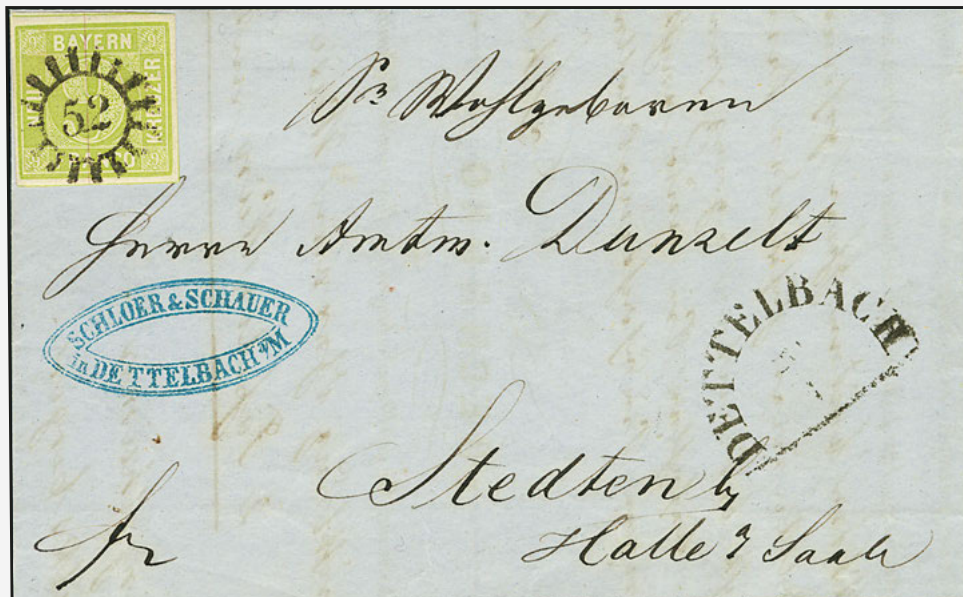 BAYERN
KREUZER
52
Sr. Wohlgeboren
Herrn Amtm. Dunzelt
SCHLOER & SCHAUER
in DETTELBACH a/M
DETTELBACH
Stedten b/
Halle a Saale
fr